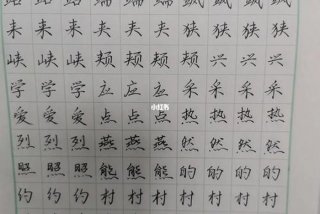 来 来 来 夹 夹 夹 狭 狭 狭
峡 峡 峡 颊 颊 颊 兴 兴 兴
学 学 学 应 应 应 采 采 采
爱 爱 爱 点 点 点 热 热 热
小红书
烈 烈 烈 燕 燕 燕 然 然 然
照 照 照 熊 熊 熊 的 的 的
约 约 约 村 村 村 村 村 村